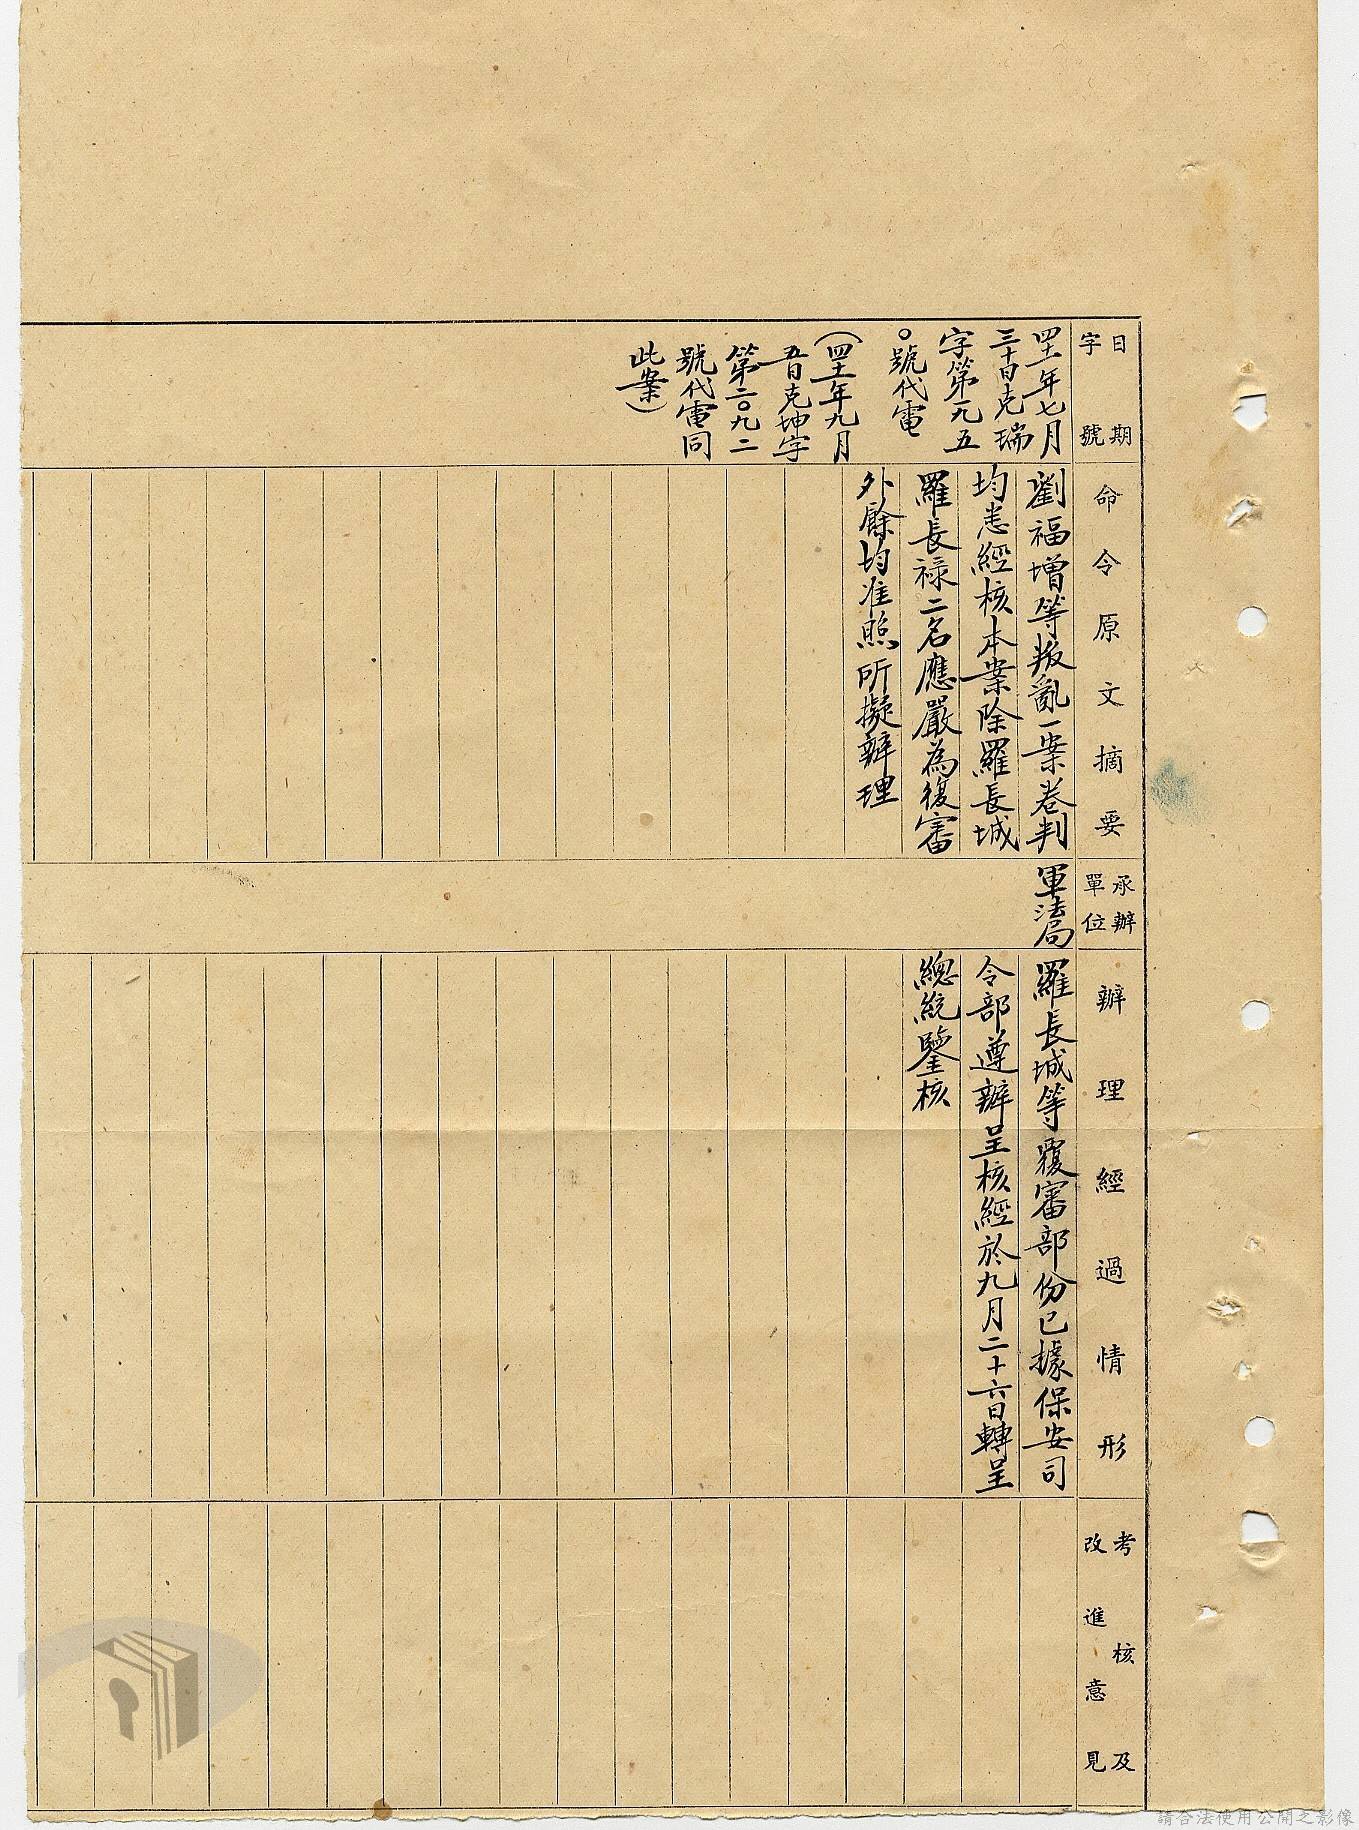 日期
字號
命令原文摘要
承辦
單位
辦理經過情形
考核及
改進意見
四十一年七月
三十日克瑞
字第一九五
〇號代電
(四十一年九月
五日克坤字
第二〇九二
號代電同
此案)
劉福增等叛亂一案卷判
均悉經核本案除羅長城
羅長祿二名應嚴為復審
外餘均准照所擬辦理
軍法局
羅長城等覆審部份已據保安司
令部遵辦呈核經於九月二十六日轉呈
總統鑒核
請合法使用公開之影像